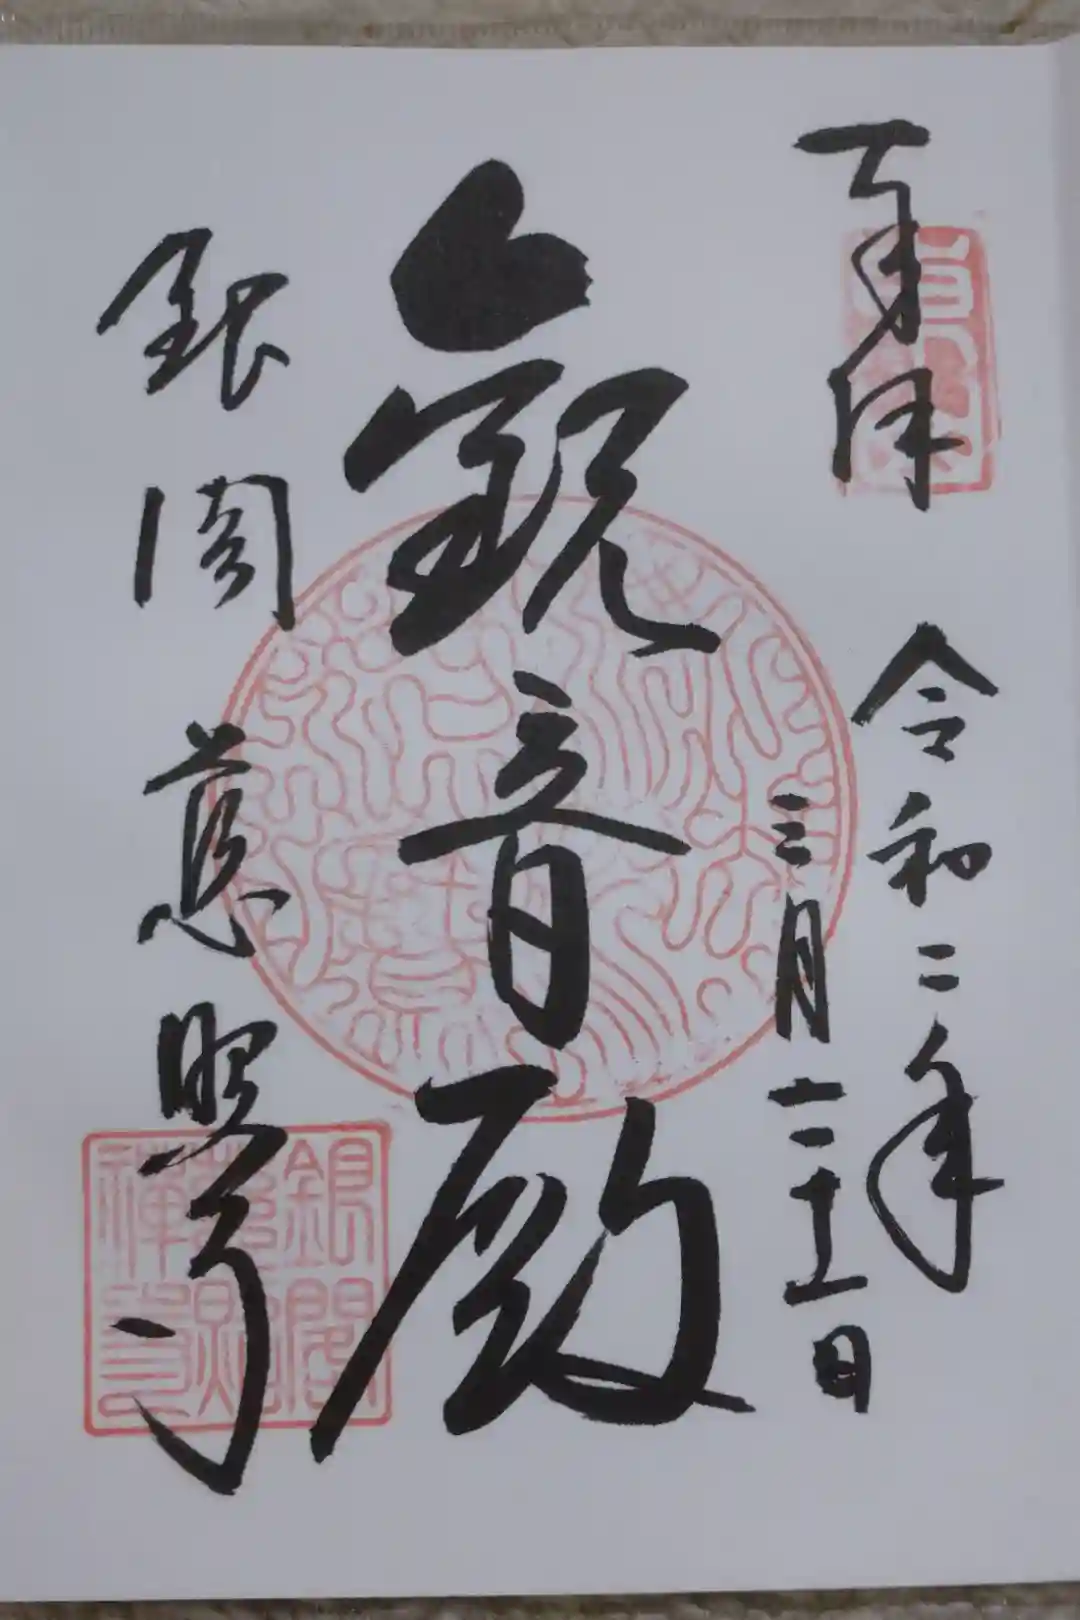 奉拝
令和二年
三月二十一日
観音殿
銀閣慈照寺
銀閣
慈照
禅寺